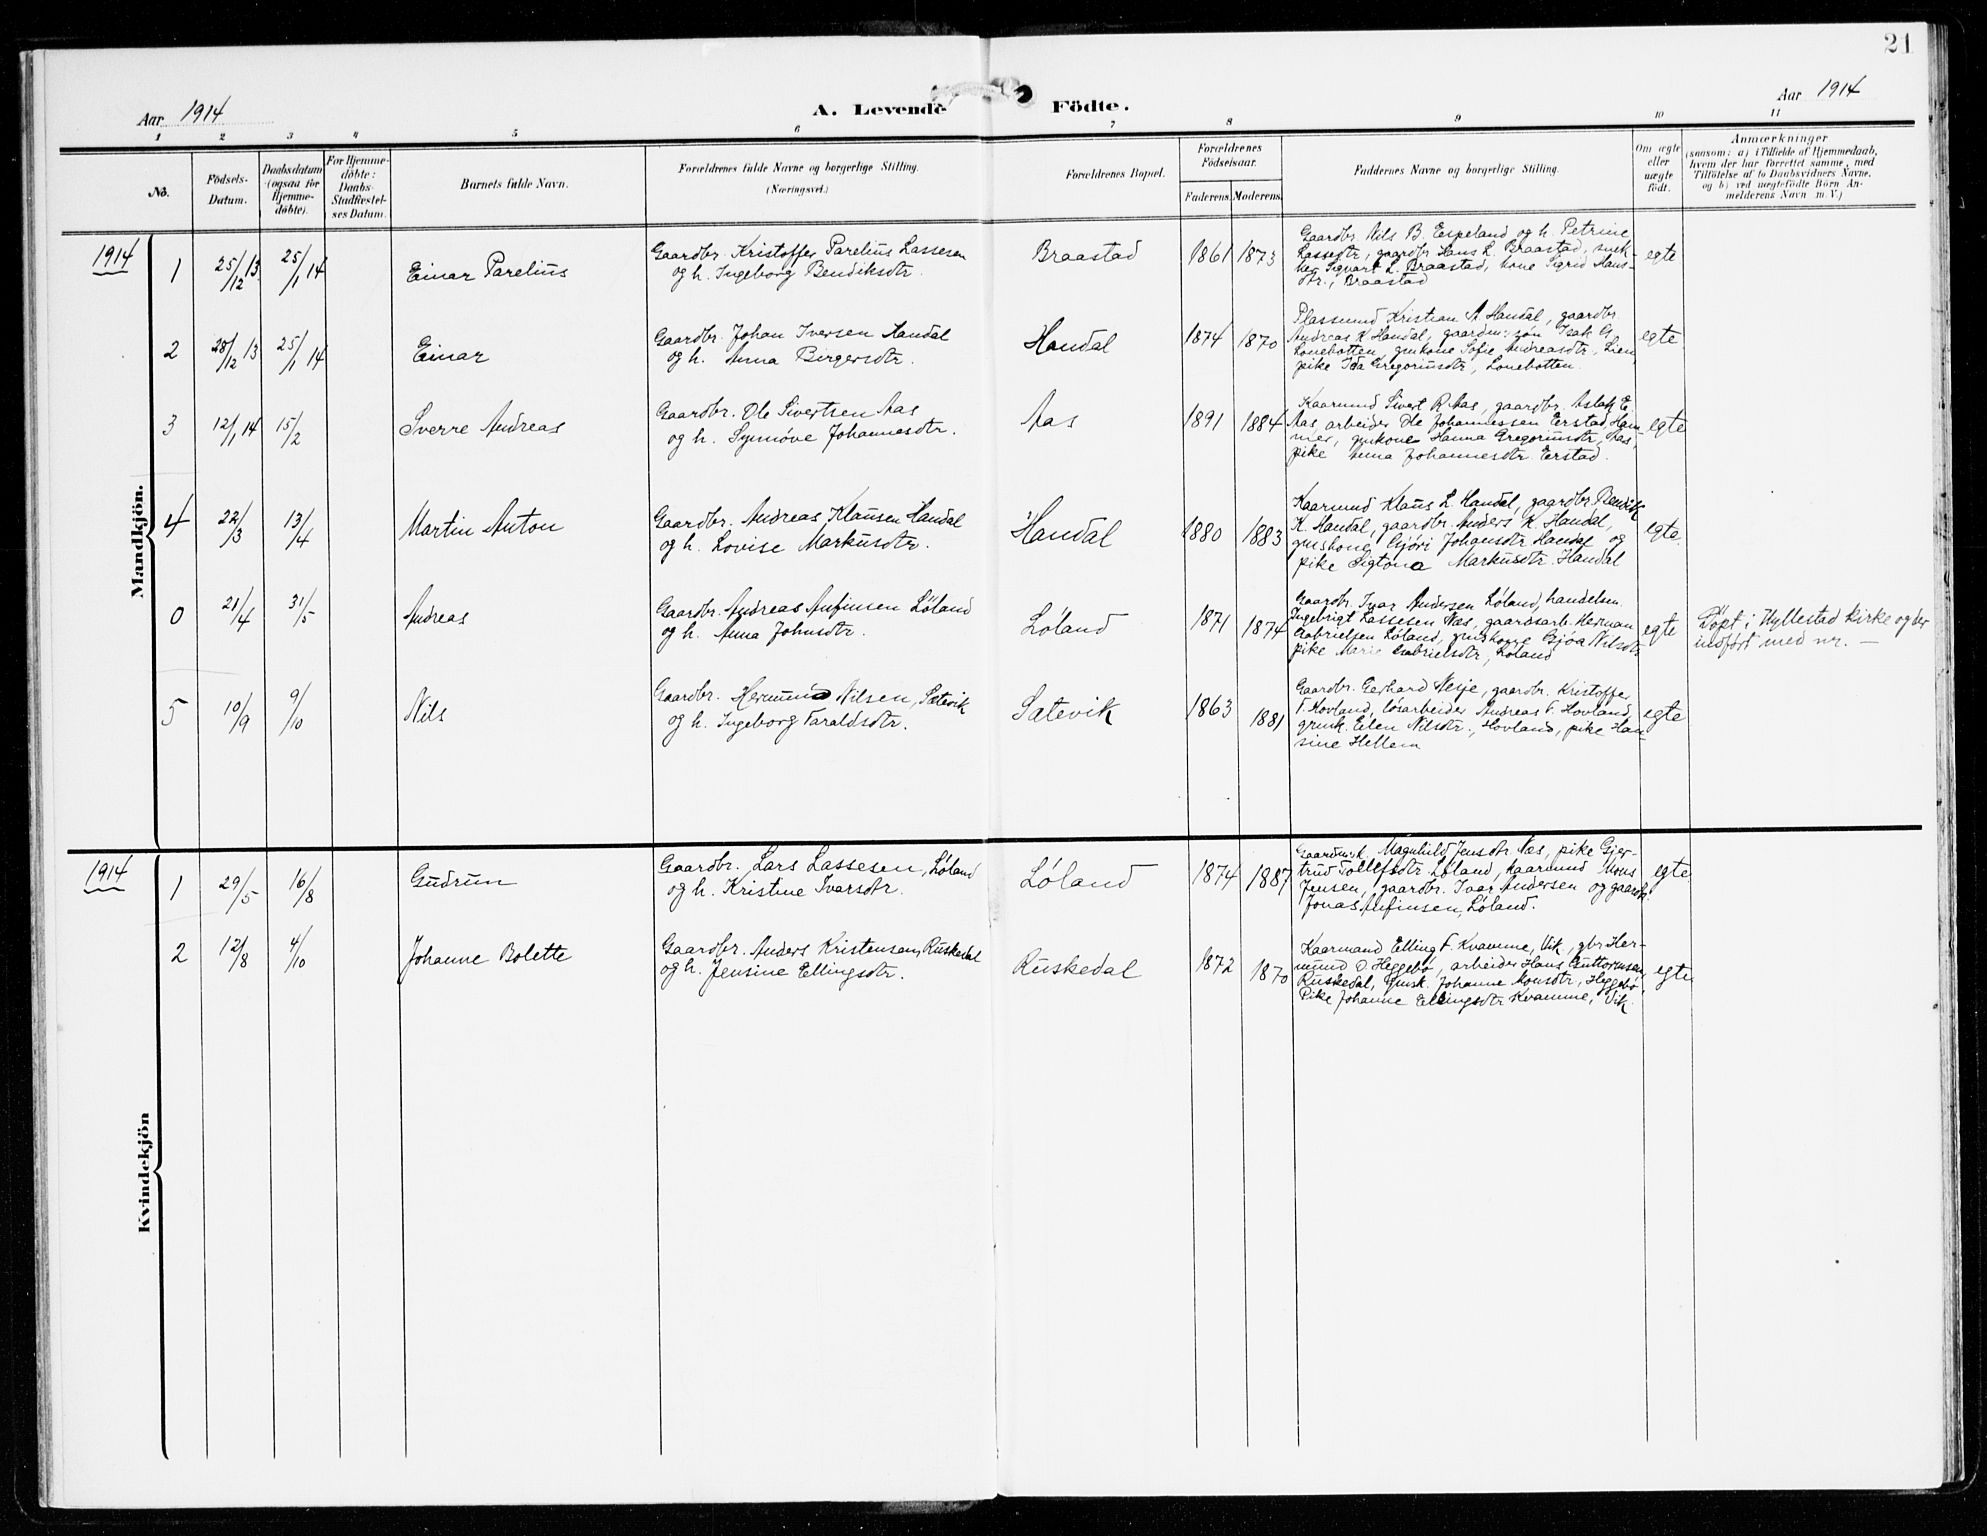 21
Aar 1914
A. Levende Födte.
Aar 1914
1 2 3 4 5 6 7 8 9 10 11
No.
Födsels-
Datum.
Daabsdatum
(ogsaa for
Hjemme-
döbte).
For Hjemme-
döbte:
Daabs-
Stadfæstel-
ses Datum.
Barnets fulde Navn.
Forældrenes fulde Navne og borgerlige Stilling.
(Næringsvei.)
Forældrenes Bopæl.
Forældrenes
Födselsaar.
Faderens. Moderens.
Faddernes Navne og borgerlige Stilling.
Om ægte
eller
uægte
födt.
Anmærkninger
(saasom: a) i Tilfælde af Hjemmedaab,
hvem der har forrettet samme, med
Tilföielse af to Daabsvidners Navne,
og b) ved uægtefödte Börn An-
melderens Navn m. V.)
Mandkjön.
1914
1
25/12 13
25/1 14
Einar Parelius
Gaardbr. Kristoffer Parelius Lassesen
og h. Ingeborg Bendiksdtr.
Braastad
1861
1873
Gaardbr. Nils B. Espeland og h. Petrine
Lassedtr, gaardbr. Hans L. Braastad, snek-
ker Sigvart L. Braastad, kone Sigrid Hans-
dtr., Braastad
egte
2
28/12 13
25/1 14
Einar
Gaardbr. Johan Iversen Handal
og h. Anna Birgersdtr.
Handal
1874
1870
Plassmand Kristian A Handal, gaardbr.
Andreas K. Handal, gaardm: søn Isak G.
Lonebotten, gmkone Sofie Andreasdtr, Lien,
pike Ida Gregoriusdtr, Lonebotten.
egte
3
12/1 14
15/2
Sverre Andreas
Gaardbr. Ole Sivertsen Aas
og h. Synnøve Johannesdtr.
Aas
1891
1884
Kaarmand Sivert R. Aas, gaardbr. Aslak E.
Aas, arbeider Ole Johannessen Erstad, Ham-
mer, gmkone Hanna Gregoriusdtr, Aas,
pike Anna Johannesdtr. Erstad.
egte
4
22/3
13/4
Martin Anton
Gaardbr. Andreas Klausen Handal
og h. Lovise Markusdtr.
Handal
1880
1883
Kaarmand Klaus L. Handal, gaardbr. Bendik
K. Handal, gaardbr. Anders K. Handal,
gmskone Gjøri Johansdtr Handal og
pike Sigtona Markusdtr. Handal
egte.
0
21/4
31/5
Andreas
Gaardbr. Andreas Anfinsen Løland
og h. Anna Johnsdtr.
Løland
1871
1874
Gaardbr. Ivar Andersen Løland, handelsm.
Ingebrigt Lassesen Næs, gaardsarb. Herman
Gabrielsen Løland, gmskone Gjøa Nilsdtr,
pike Marie Gabrielsdtr, Løland
egte
Døpt i Hyllestad kirke og der
indført med nr. —
5
10/9
9/10
Nils
Gaardbr. Hermund Nilsen, Sætevik
og h. Ingeborg Taraldsdtr.
Satevik
1863
1881
Gaardbr. Gerhard Nesje, gaardbr. Kristoffer
T. Hovland, løsarbeider Andreas T. Hovland,
gmsk. Elen Nilsdtr., Hovland, pike Han-
sine Hellem
egte
Kvindekjön
1914
1
29/5
16/8
Gudrun
Gaardbr. Lars Lassesen, Løland
og h. Kristine Ivarsdtr.
Løland
1874
1887
Gaardmsk. Magnhild Jensdtr. Næs, pike Gjer-
trud Tollefsdtr. Løland, kaarmand Mons
Jensen, gaardbr. Ivar Andersen og gaardbr.
Jonas Anfinsen, Løland.
egte
2
12/8
4/10
Johanne Bolette
Gaardbr. Anders Kristensen, Ruskedal
og h. Jensine Ellingsdtr.
Ruskedal
1872
1870
Kaarmand Elling T. Kvamme, Vik, gbr. Her-
mund O. Heggebø, arbeider Hans Guttormsen
Ruskedal, Gmsk. Johanne Monsdtr, Heggebø,
Pike Johanne Ellingsdtr Kvamme, Vik.
egte